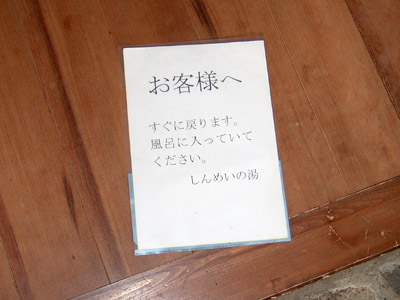 お客様へ
すぐに戻ります。
風呂に入っていて
ください。
しんめいの湯